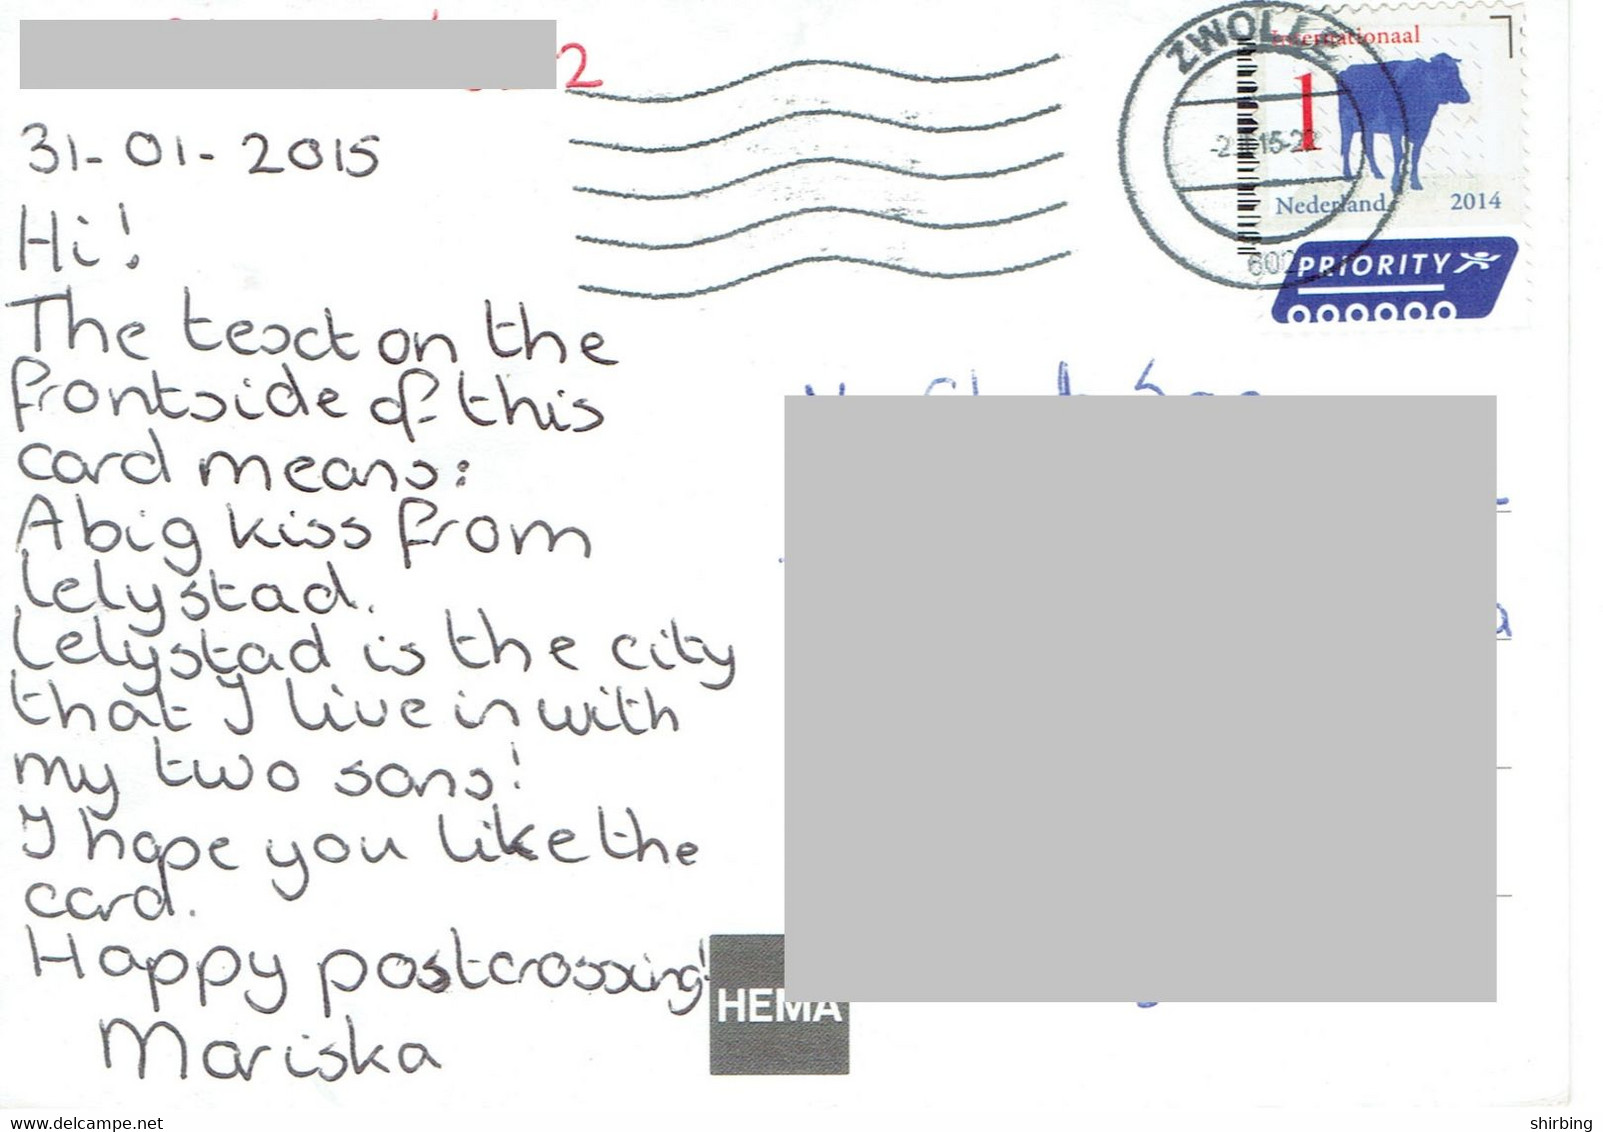 31-01-2015
Hi!
The text on the
frontside of this
card means:
A big kiss from
Lelystad.
Lelystad is the city
that I live in with
my two sons!
I hope you like the
card.
Happy postcrossing!
Mariska
HEMA
ZWOLLE
Internationaal
1
Nederland 2014
PRIORITY
www.delcampe.net
shirbing